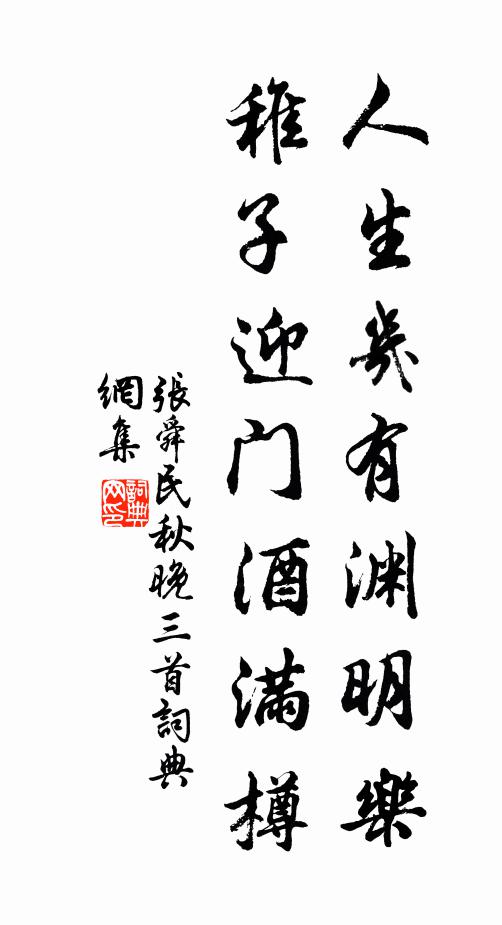 人生幾有渊明樂
稚子迎门酒满樽
張舜民秋晚三首詞典
網集
詞典网印